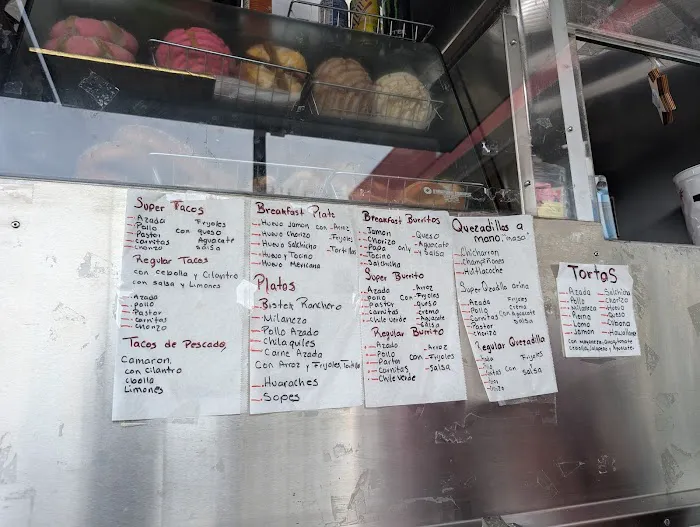 Super Tacos
Azada Frijoles
Pollo con queso
Pastor Aguacate
Carnitas salsa
Chorizo
Regular Tacos
con cebolla y Cilantro
con salsa y Limones
Azada
pollo
Pastor
carnitas
Chorizo
Tacos de Pescado,
Camaron.
con cilantro
cbolla
Limones
Breakfast Plate
Huevo Jamon con - Arroz
Huevo Chorizo - Frijoles
Huevo Salchicha - Tortillas
Huevo y Tocino
Huevo Mexicana
Platos
Bistek Ranchero
Milaneza
Pollo Azado
Chilaquiles
Carne Azada
Con Arroz y Frijoles, Tortilla
Huaraches
Sopes
Breakfast Burritos
Jamon - Queso
Chorizo - Aguacate
Papa only y Salsa
Tocino
Salchicha
Super Burrito
Azada - Arroz
pollo con - Frijoles
Pastor - queso
carnitas - crema
Chile verde - Aguacate
- salsa
Regular Burrito
Azada - Arroz
Pollo
Pastor - Frijoles
Carnitas - Salsa
Chile verde
Quezadillas a
mano. "masa"
Chicharron
Champiñones
Huitlacoche
Super Qezadilla arina
Azada Frijoles
Pollo crema
Carnitas con Aguacate
Pastor salsa
Chorizo
Regular Quezadilla
Frijoles
con
salsa
Tortas
Azada - Salchicha
Pollo - Chorizo
Milaneza - Huevo
Pierna - Cubana
Lomo - Hawaiiana
Jamon